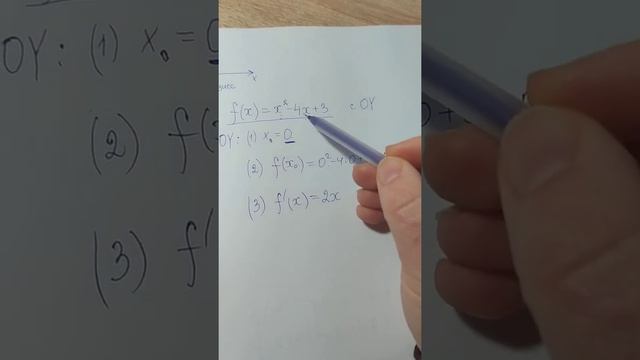 x
f(x) = x² - 4x + 3 с OY
OY: (1) x₀ = 0
(2) f(x₀) = 0² - 4·0
(3) f'(x) = 2x